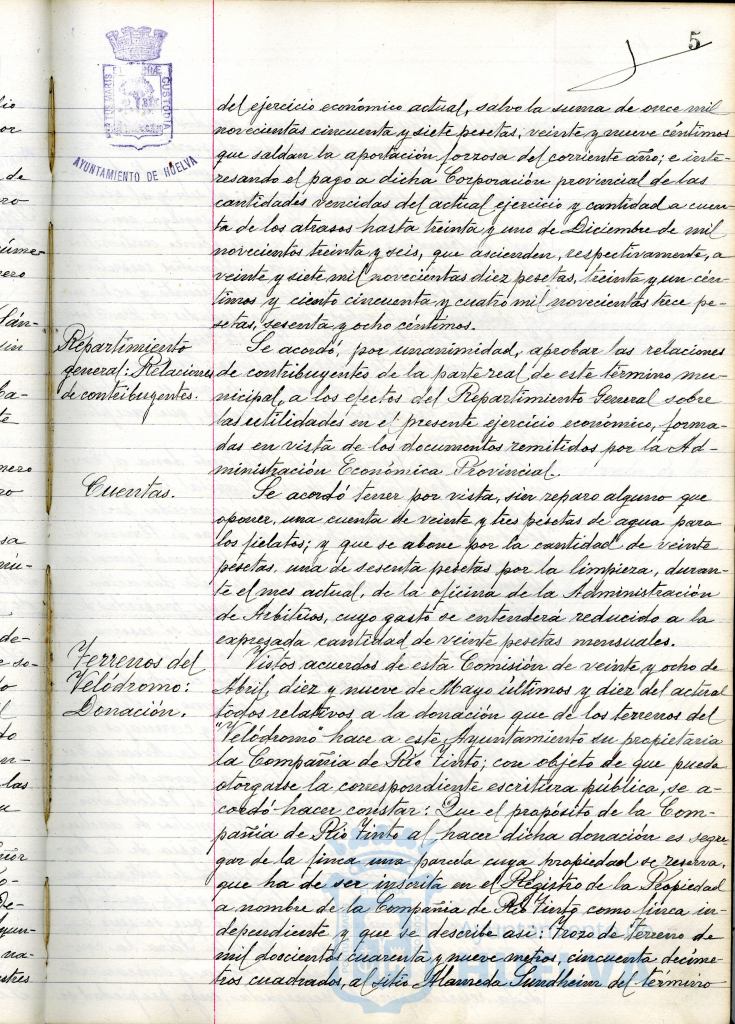 5
AYUNTAMIENTO DE HUELVA
del ejercicio económico actual, salvo la suma de once mil
novecientas cincuenta y siete pesetas, veinte y nueve céntimos
que saldan la aportación forzosa del corriente año; e inte-
resando el pago a dicha Corporación provincial de las
cantidades vencidas del actual ejercicio y cantidad a cuen-
ta de los atrasos hasta treinta y uno de Diciembre de mil
novecientos treinta y seis, que ascienden, respectivamente, a
veinte y siete mil novecientas diez pesetas, treinta y un cén-
timos y ciento cincuenta y cuatro mil novecientas trece pe-
setas, sesenta y ocho céntimos.
Repartimiento
general: Relaciones
de contribuyentes.
Se acordó, por unanimidad, aprobar las relaciones
de contribuyentes de la parte real de este término mu-
nicipal, a los efectos del Repartimiento General sobre
las utilidades en el presente ejercicio económico, forma-
das en vista de los documentos remitidos por la Ad-
ministración Económica Provincial.
Cuentas.
Se acordó tener por vista, sin reparo alguno que
oponer, una cuenta de veinte y tres pesetas de agua para
los fielatos; y que se abone por la cantidad de veinte
pesetas, una de sesenta pesetas por la limpieza, duran-
te el mes actual, de la oficina de la Administración
de Arbitrios, cuyo gasto se entenderá reducido a la
expresada cantidad de veinte pesetas mensuales.
Terrenos del
Velódromo:
Donación.
Vistos acuerdos de esta Comisión de veinte y ocho de
Abril, diez y nueve de Mayo últimos y diez del actual
todos relativos a la donación que de los terrenos del
"Velódromo" hace a este Ayuntamiento su propietaria
la Compañía de Río Tinto; con objeto de que pueda
otorgarse la correspondiente escritura pública, se a-
cordó hacer constar: Que el propósito de la Com-
pañía de Río Tinto al hacer dicha donación es segre-
gar de la finca una parcela cuya propiedad se reserva,
que ha de ser inscrita en el Registro de la Propiedad
a nombre de la Compañía de Río Tinto como finca in-
dependiente y que se describe así: Trozo de terreno de
mil doscientos cuarenta y nueve metros, cincuenta decíme-
tros cuadrados, al sitio Alameda Sundheim del término